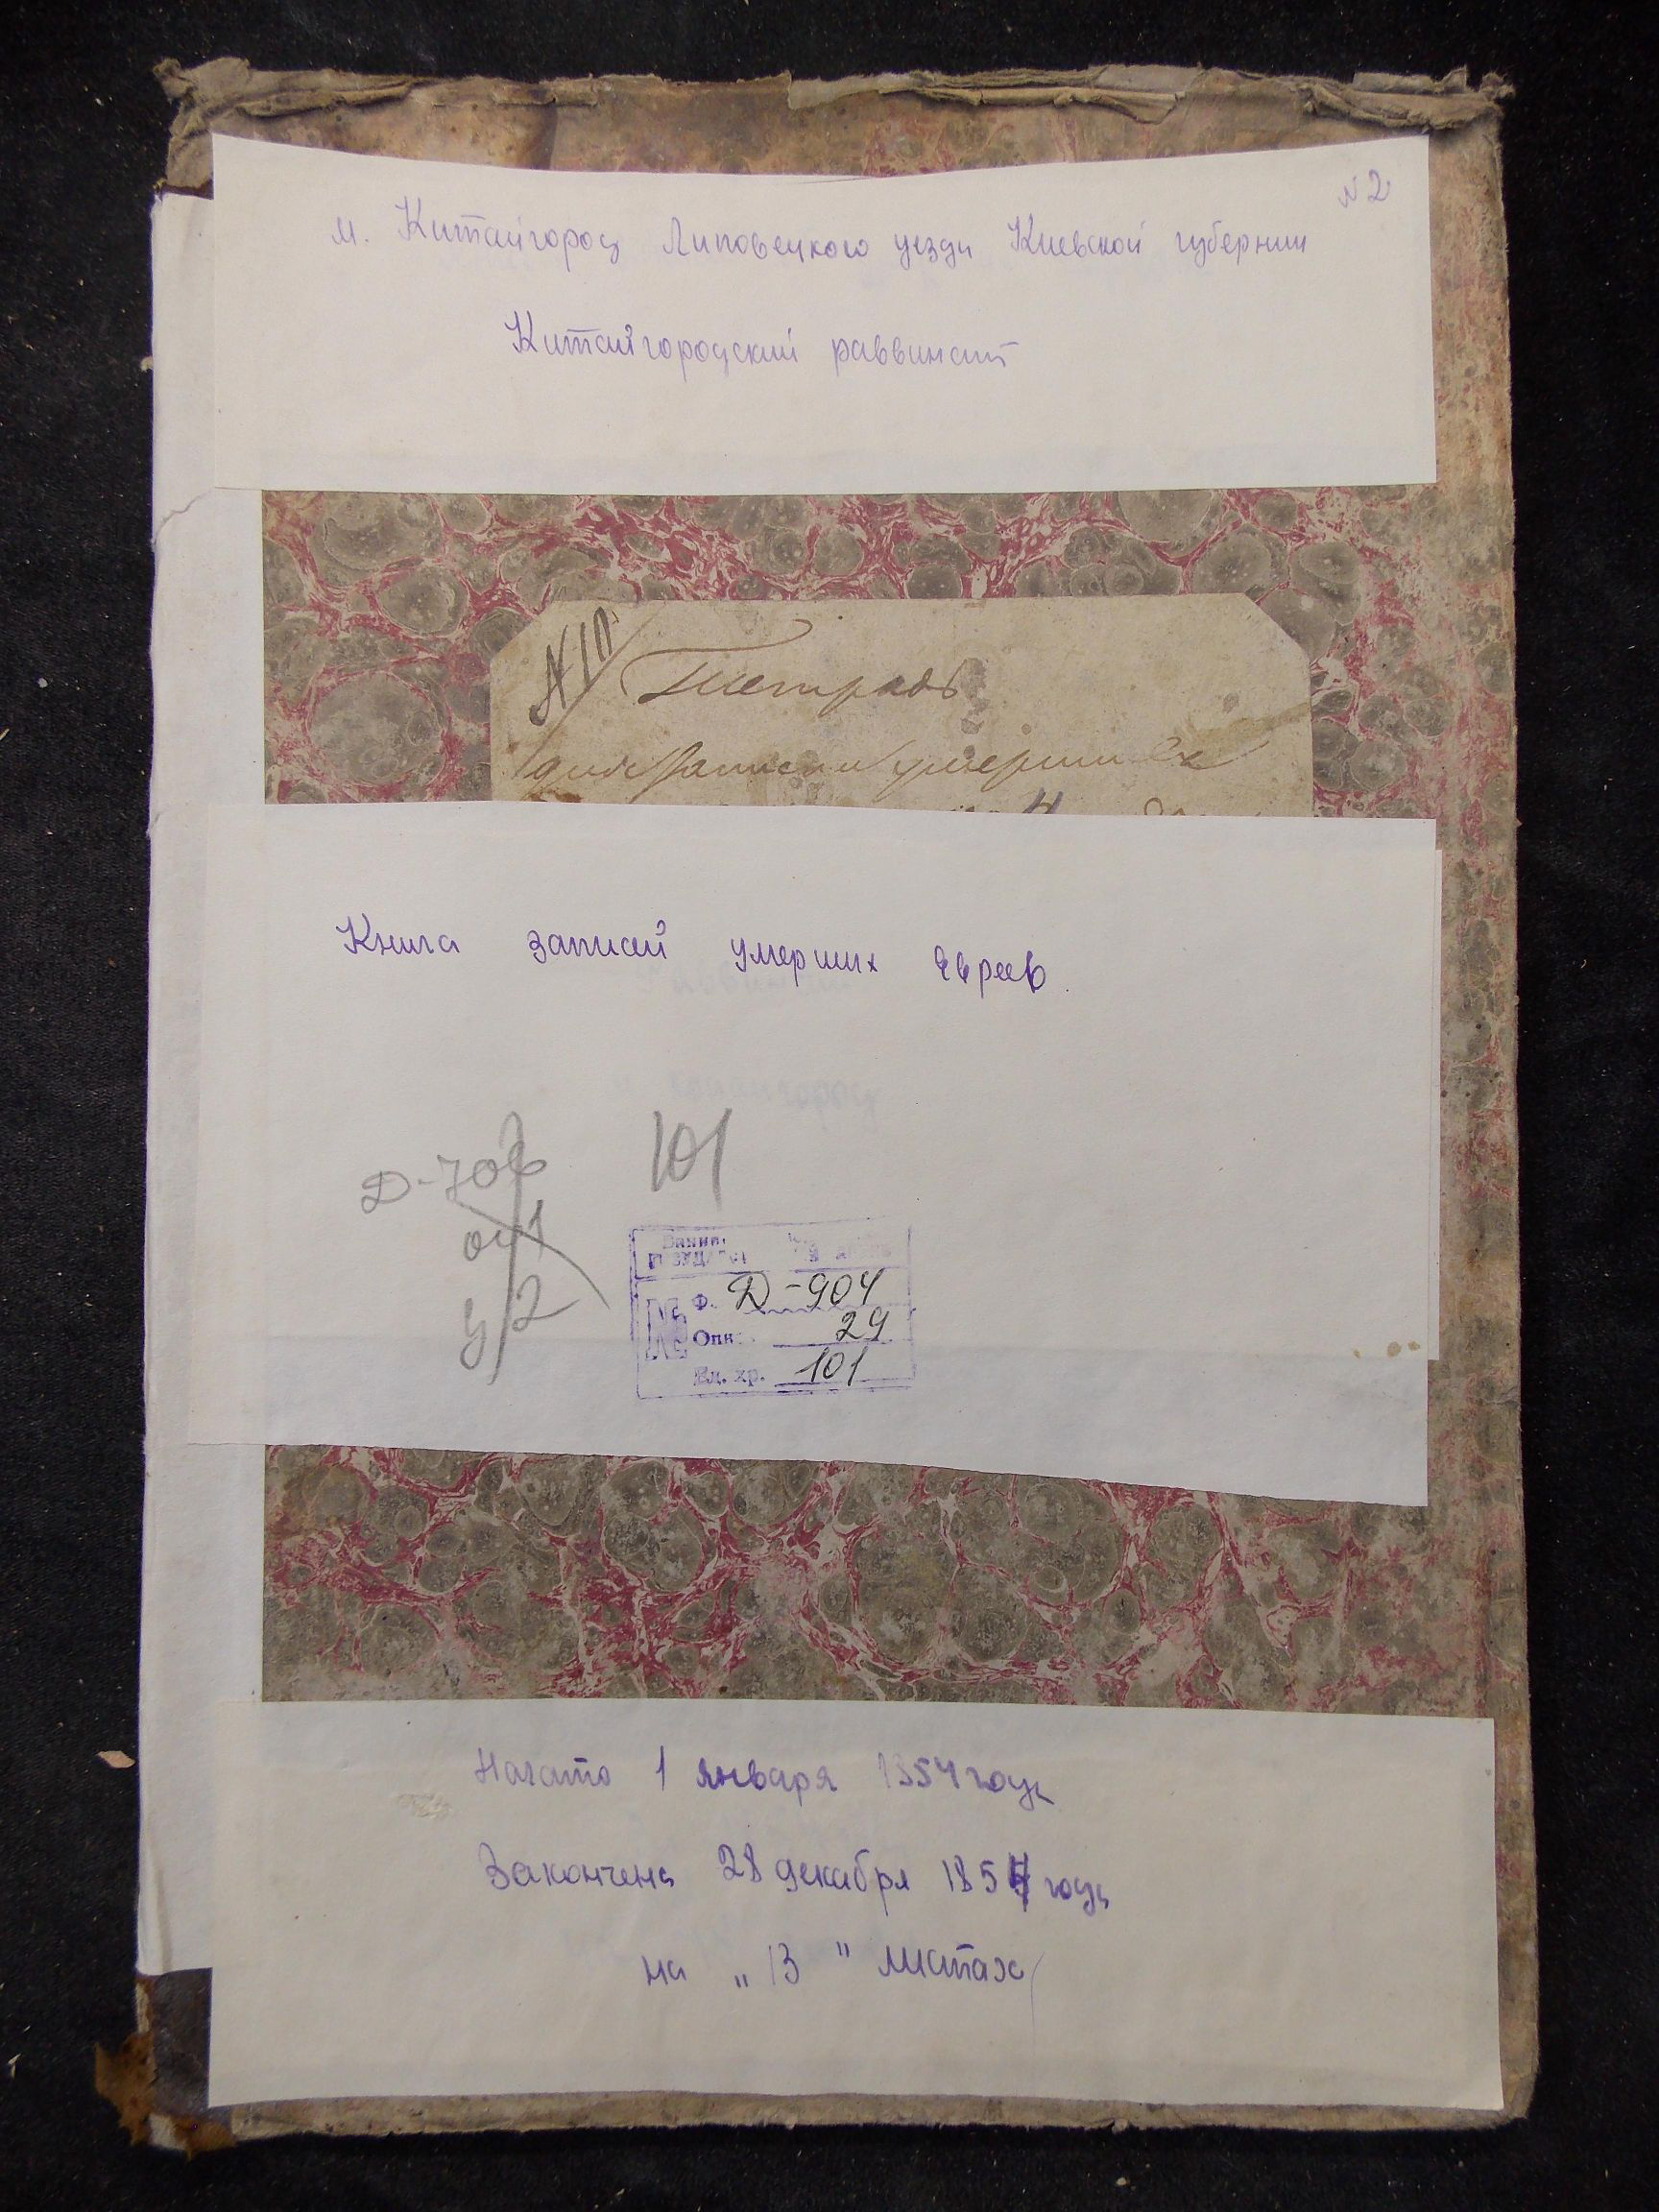 №2
м. Китайгород Липовецкого уезда Киевской губернии
Китайгородский раввинат
Тетрадь
для записки умерших
Книга записей умерших евреев.
101
Д-708
оп 1
2
Ф. Д-904
№ Опис. 29
Ед. хр. 101
Начато 1 января 1854 года
Закончена 28 декабря 1854 года
на „13" листах